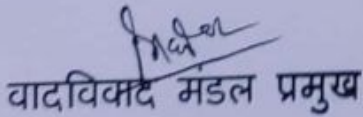 वादविवाद मंडल प्रमुख